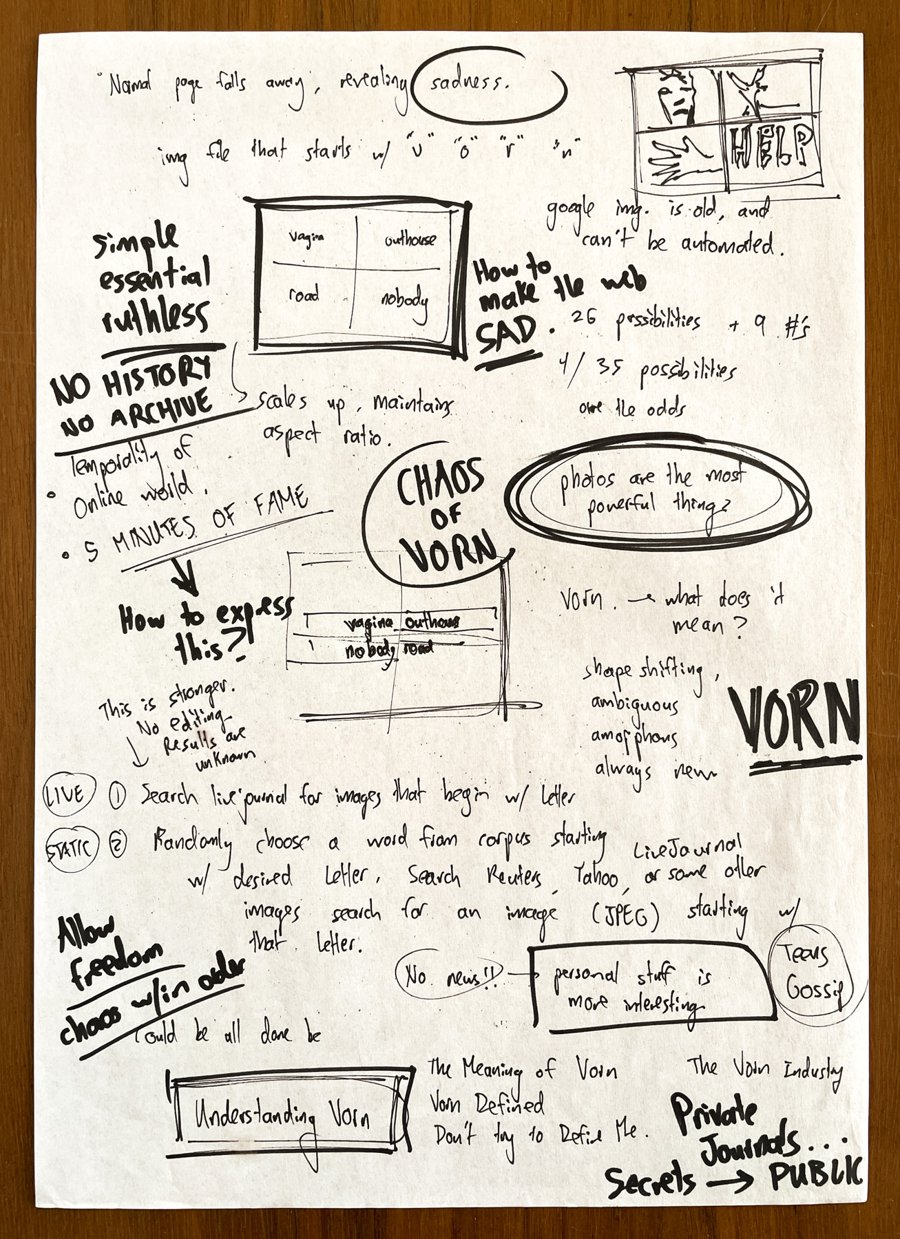 Normal page falls away, revealing sadness.
img file that starts w/ "v" "o" "r" "n"
HELP
google img. is old, and
can't be automated.
simple
essential
ruthless
vagina outhouse
road nobody
How to
make the web
SAD.
26 possibilities + 9 #'s
4/35 possibilities
are the odds
NO HISTORY
NO ARCHIVE
scales up, maintains
aspect ratio.
• Temporality of
Online world.
• 5 MINUTES OF FAME
CHAOS
OF
VORN
photos are the most
powerful thing?
How to express
this?
vagina outhouse
nobody road
Vorn. → what does it
mean?
shape shifting,
ambiguous
amorphous
always new
VORN
This is stronger.
No editing
Results are
unknown
LIVE ① Search livejournal for images that begin w/ letter
STATIC ② Randomly choose a word from corpus starting
w/ desired Letter. Search Reuters, Yahoo, LiveJournal or some other
images search for an image (JPEG) starting w/
that letter.
Allow
freedom
chaos w/in order
No news!!
personal stuff is
more interesting
Tears
Gossip
Could be all done be
Understanding Vorn
The Meaning of Vorn
Vorn Defined
Don't try to Define Me.
The Vorn Industry
Private
Journals...
Secrets → PUBLIC